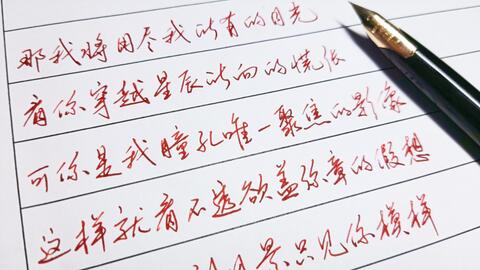 那我将用尽我所有的目光
看你穿越星辰所向的慌张
可你是我瞳孔唯一聚焦的影像
这样就看不透欲盖弥章的假想
只见你模样